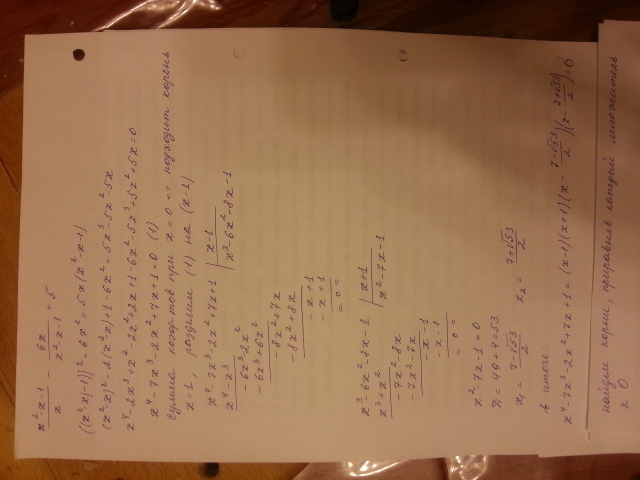 x²-x-1/x - 6x/x²-x-1 = 5
((x²-x)-1))² - 6x² = 5x(x²-x-1)
(x²-x)² - 2(x²-x) + 1 - 6x² = 5x³-5x²-5x
x⁴-2x³+x²-2x²+2x+1-6x²-5x³+5x²+5x=0
x⁴-7x³-2x²+7x+1=0 (1)
сумма коэф-тов при x=0 => подходит корень
x=1, разделим (1) на (x-1)
x⁴-7x³-2x²+7x+1 | x-1
x⁴-x³ | x³-6x²-8x-1
-6x³-2x²
-6x³+6x²
-8x²+7x
-8x²+8x
-x+1
-x+1
=0=
x³-6x²-8x-1 | x+1
x³+x² | x²-7x-1
-7x²-8x
-7x²-7x
-x-1
-x-1
=0=
x²-7x-1=0
D=49+4=53
x₁= 7-√53/2 x₂= 7+√53/2
в итоге:
x⁴-7x³-2x²+7x+1=(x-1)(x+1)(x- 7-√53/2)(x- 7+√53/2)=0
найдем корни, приравняв каждый множитель
к 0